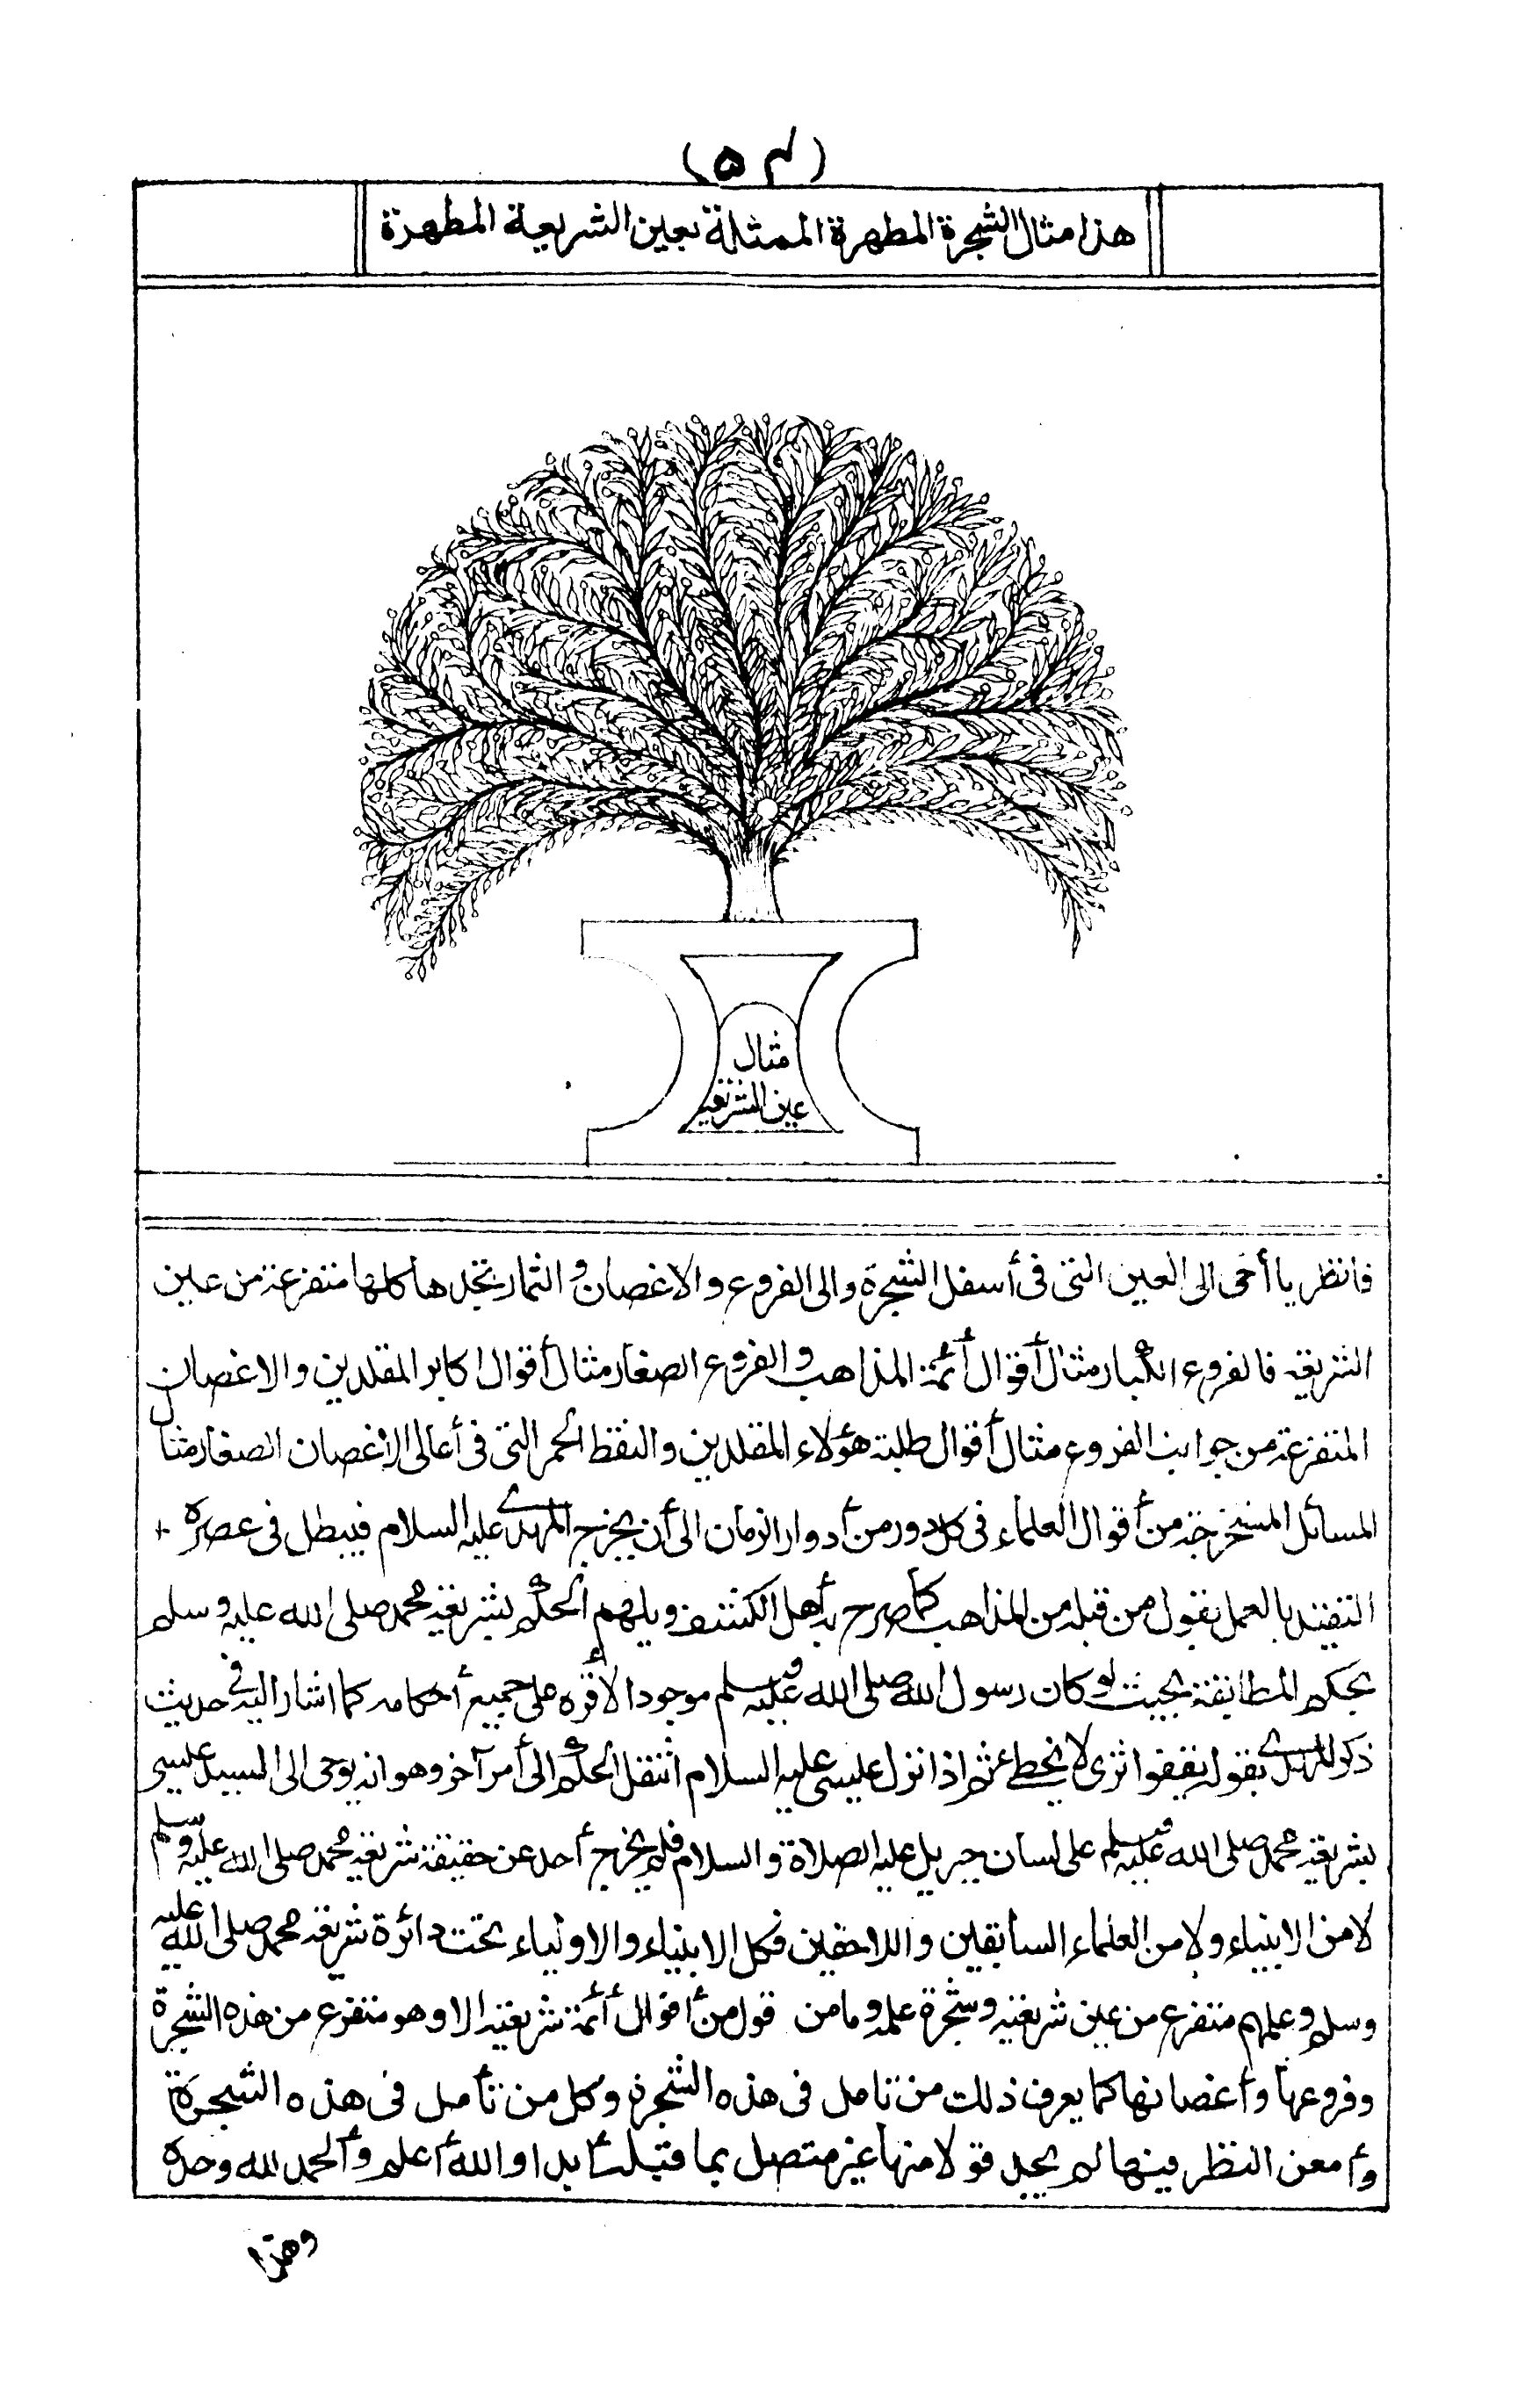 (۵۴)
هذا مثال الشجرة المطهرة الممثلة بعين الشريعة المطهرة
مثال
عين الشريعة
فانظر يا أخى الى العين التى فى أسفل الشجرة والى الفروع والاغصان والثمار تجدها كلها متفرعة من عين
الشريعة فالفروع الكبار مثال أقوال أئمة المذاهب والفروع الصغار مثال أقوال اكابر المقلدين والاغصان
المتفرعة من جوانب الفروع مثال أقوال طلبة هؤلاء المقلدين والنقط الحمر التى فى أعالى الاغصان الصغار مثال
المسائل المستخرجة من أقوال العلماء فى كل دور من أدوار الزمان الى أن يخرج المهدى عليه السلام فيبطل فى عصره
التقيد بالعمل بقول من قبله من المذاهب كما صرح به أهل الكشف ويلهم الحكم بشريعة محمد صلى الله عليه وسلم
بحكم المطابقة بحيث لو كان رسول الله صلى الله عليه وسلم موجودا لأقره على جميع أحكامه كما اشار اليه فى حديث
ذكر المهدى بقوله يقفوا ثرى لا يخطى ثم اذا نزل عليسى عليه السلام انتقل الحكم الى أمر آخر وهو انه يوحى الى السيد عيسى
بشريعة محمد صلى الله عليه وسلم على لسان جبريل عليه الصلاة والسلام فلم يخرج أحد عن حقيقة شريعة محمد صلى الله عليه وسلم
لا من الانبياء ولا من العلماء السابقين واللاحقين فكل الانبياء والاولياء تحت دائرة شريعة محمد صلى الله عليه
وسلم وعلمهم متفرع من عين شريعته وشجرة علمه وما من قول من أقوال أئمة شريعته الا وهو متفرع من هذه الشجرة
وفروعها وأغصانها كما يعرف ذلك من تامل فى هذه الشجرة وكل من تأمل فى هذه الشجرة
وأمعن النظر فيها لم يجد قولا منها غير متصل بما قبله أبدا والله أعلم والحمد لله وحده
وهذا